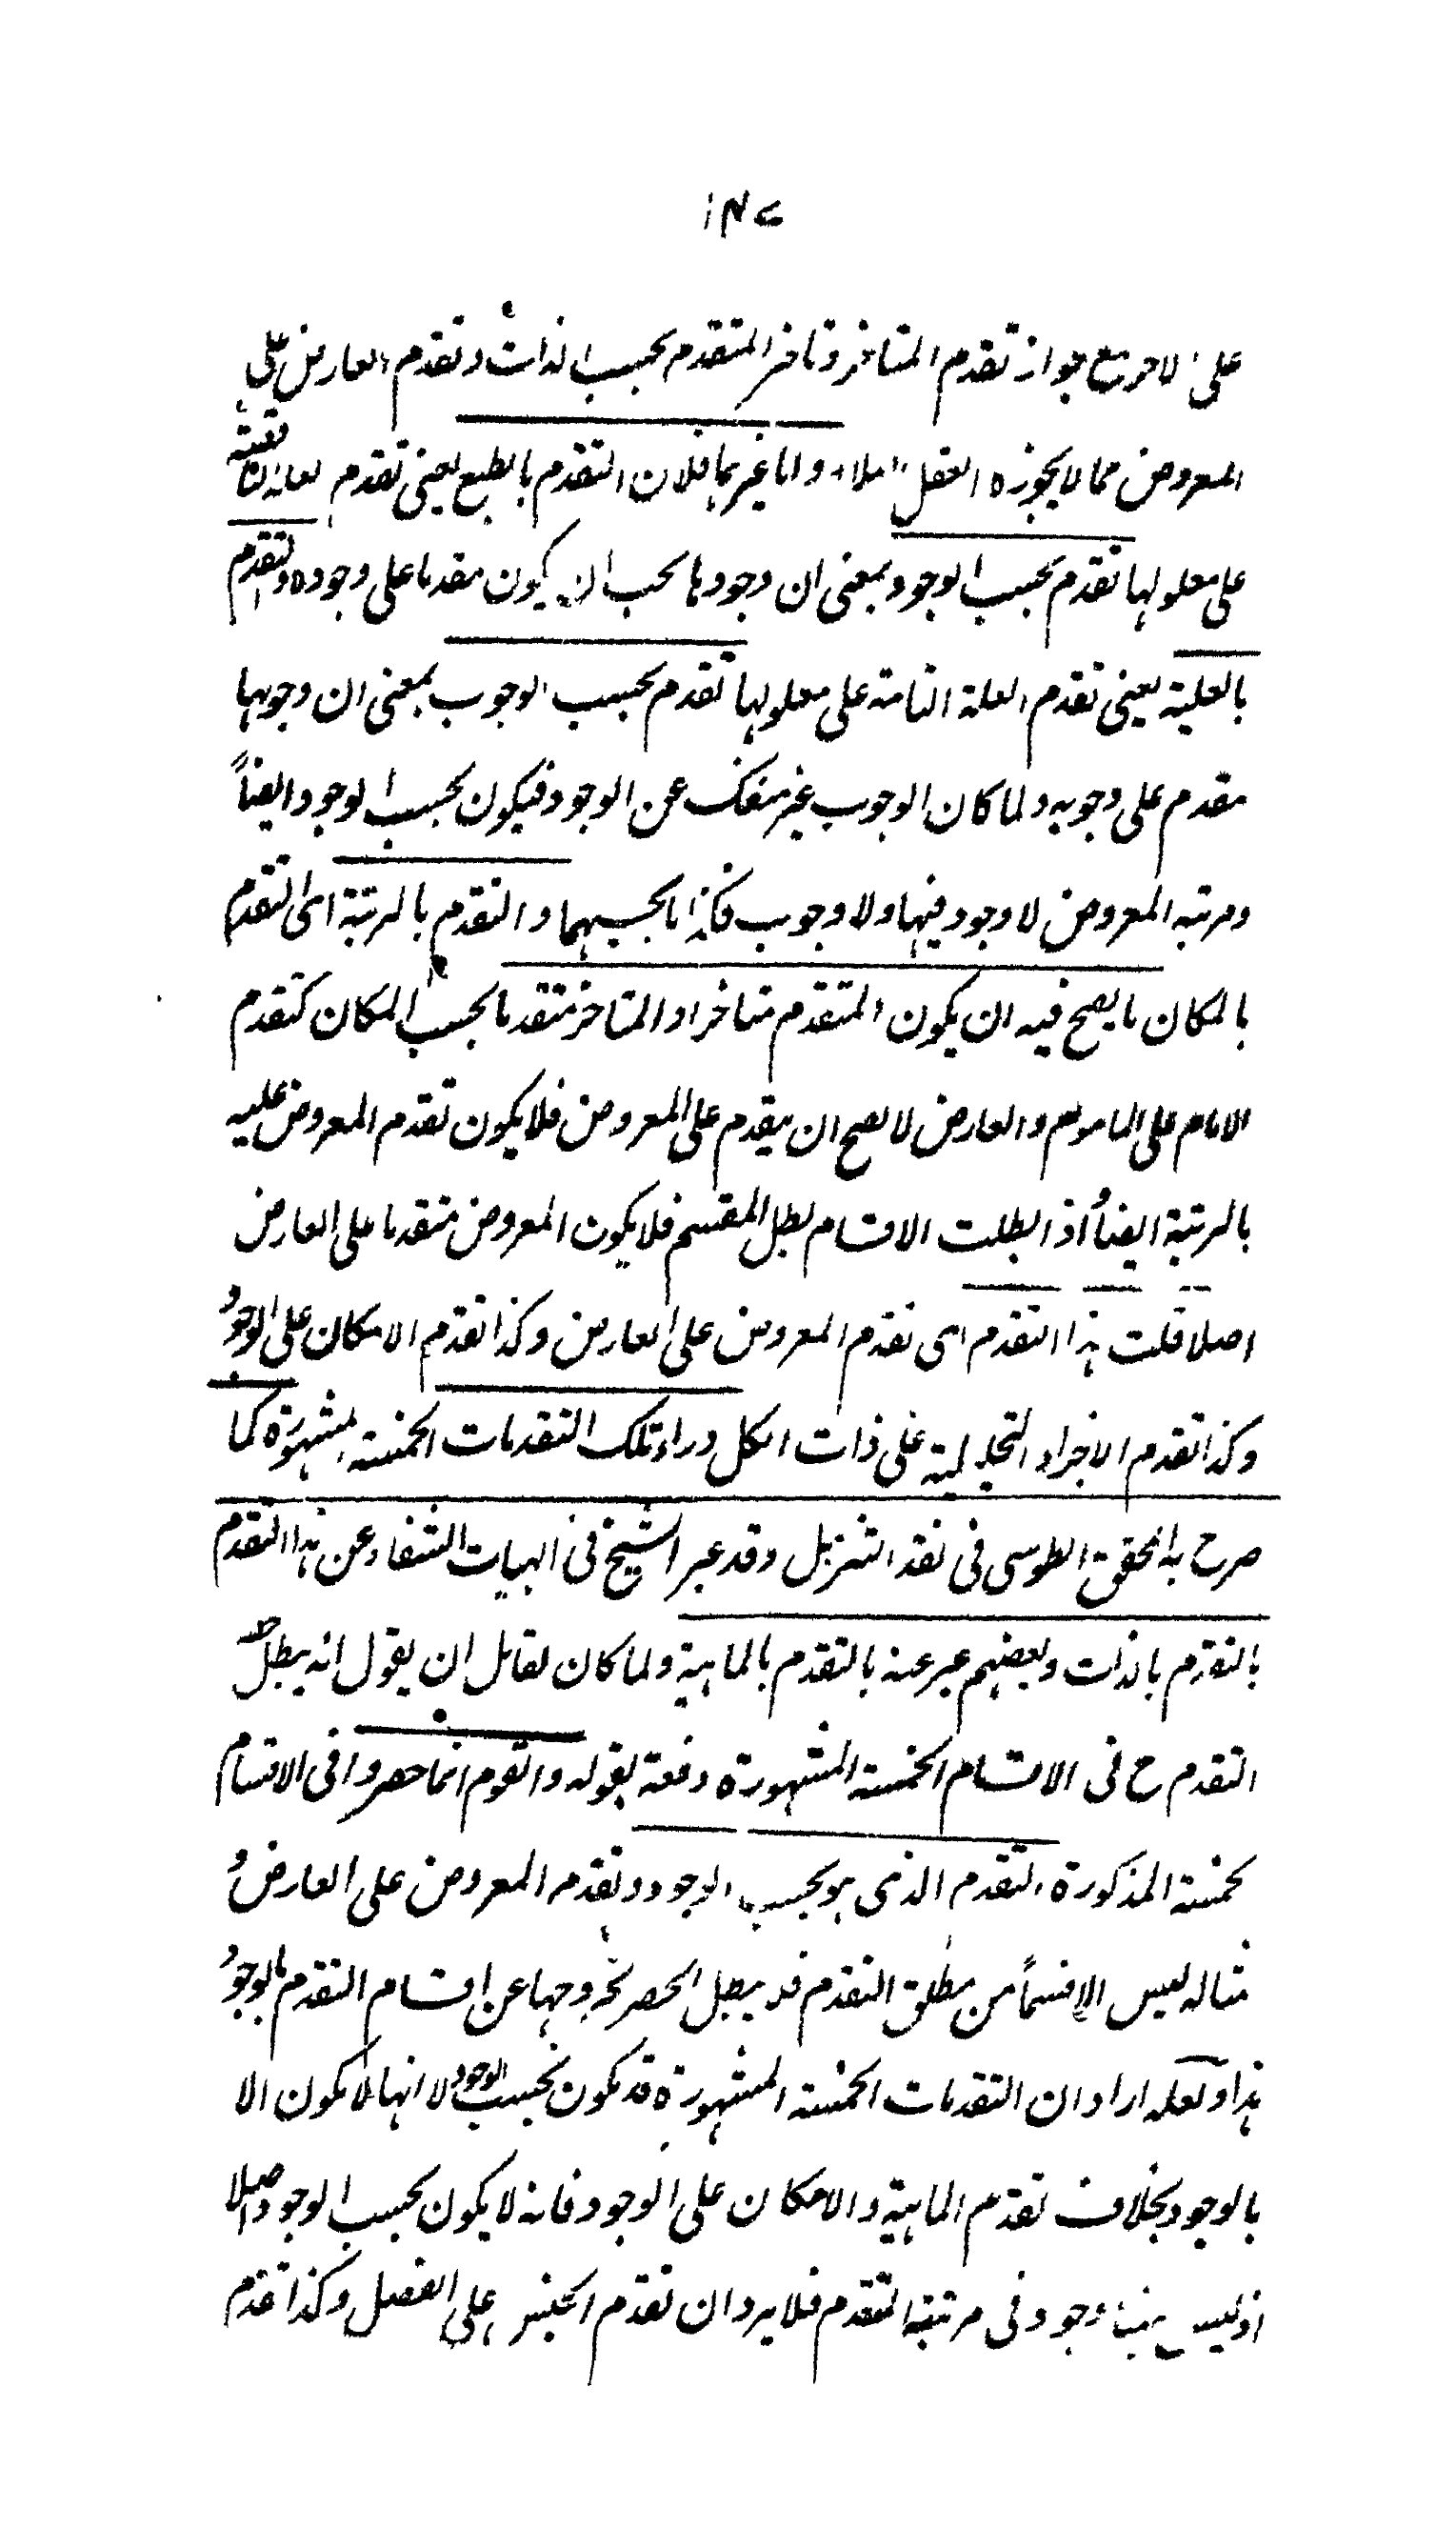 ١٤٧
على الاخر مع جواز تقدم المتاخر وتاخر المتقدم بحسب الذات وتقدم العارض على
المعروض مما لا يجوزه العقل اصلا واما غيرهما فلان التقدم بالطبع يعنى تقدم العلة الناقصة
على معلولها تقدم بحسب الوجود بمعنى ان وجودها يجب ان يكون مقدما على وجوده والتقدم
بالعلية يعنى تقدم العلة التامة على معلولها تقدم بحسب الوجوب بمعنى ان وجوبها
مقدم على وجوبه ولما كان الوجوب غير منفك عن الوجود فيكون بحسب الوجود ايضاً
ومرتبه المعروض لا وجود فيها ولا وجوب فكذا ما بحسبهما والتقدم بالرتبة اى التقدم
بالمكان ما يصح فيه ان يكون المتقدم متاخرا والمتاخر متقدما بحسب المكان كتقدم
الامام على الماموم والعارض لا يصح ان يتقدم على المعروض فلا يكون تقدم المعروض عليه
بالرتبة ايضاً واذ ابطلت الاقسام بطل المقسم فلا يكون المعروض متقدما على العارض
اصلا قلت هذا التقدم اى تقدم المعروض على العارض وكذا تقدم الامكان على الوجود
وكذا تقدم الاجزاء التحليلية على ذات الكل وراء تلك التقدمات الخمسة المشهورة كما
صرح به المحقق الطوسى فى نقد التنزيل وقد عبر الشيخ فى الهيات الشفاء عن هذا التقدم
بالتقدم بالذات وبعضهم عبر عنه بالتقدم بالماهية ولما كان لقائل ان يقول انه يبطل حصر
التقدم ح فى الاقسام الخمسة المشهورة دفعه بقوله والقوم انما حصروا فى الاقسام
الخمسة المذكورة التقدم الذى هو بحسب الوجود وتقدم المعروض على العارض و
مثاله ليس الا قسماً من مطلق التقدم فلا يبطل الحصر لخروجها عن اقسام التقدم بالوجود
هذا ولعله اراد ان التقدمات الخمسة المشهورة قد تكون بحسب الوجود لا انها لا تكون الا
بالوجود بخلاف تقدم الماهية والامكان على الوجود فانه لا يكون بحسب الوجود اصلا
اذ ليس هناك وجود فى مرتبة المتقدم فلا يرد ان تقدم الجنس على الفصل وكذا تقدم